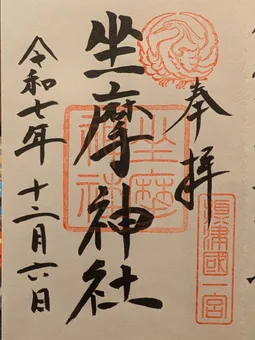 奉拝
坐摩神社
令和七年 十二月六日
坐摩神社
摂津國一宮